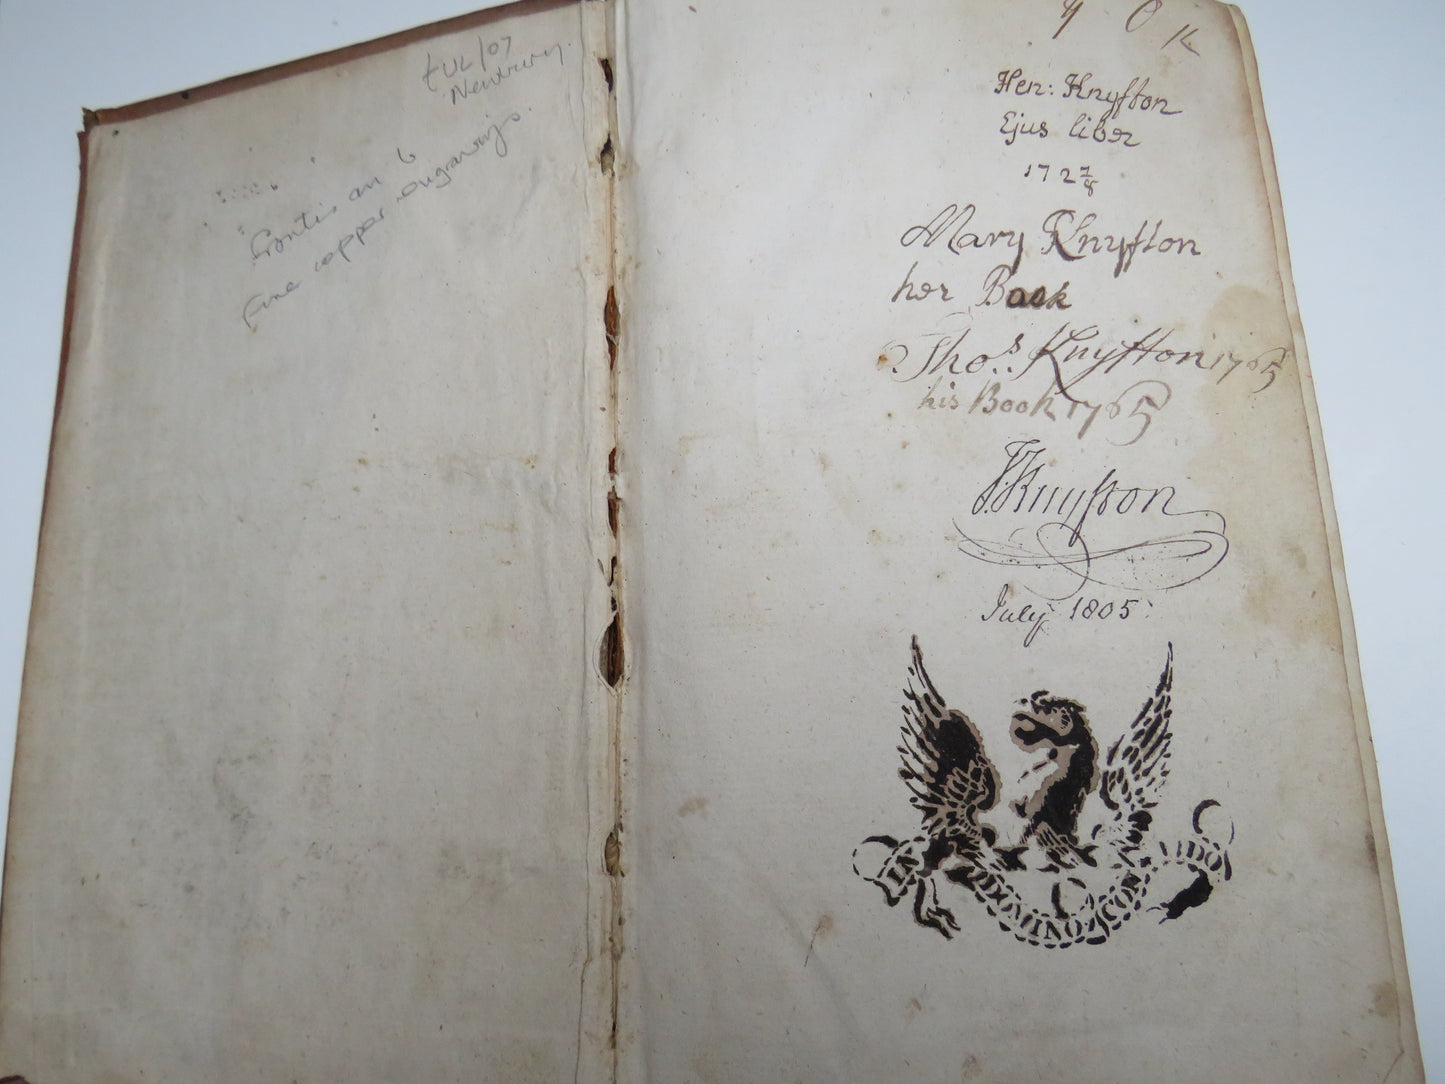 £UL/07
Newbury.
Frontis and 6
fine copper engravings.
Hen: Knyfton
Ejus liber
172 7/8
Mary Knyfton
her Book
Thos. Knyfton 1765
his Book 1765
T. Knyfton
July 1805.
IN DOMINO CONFIDO